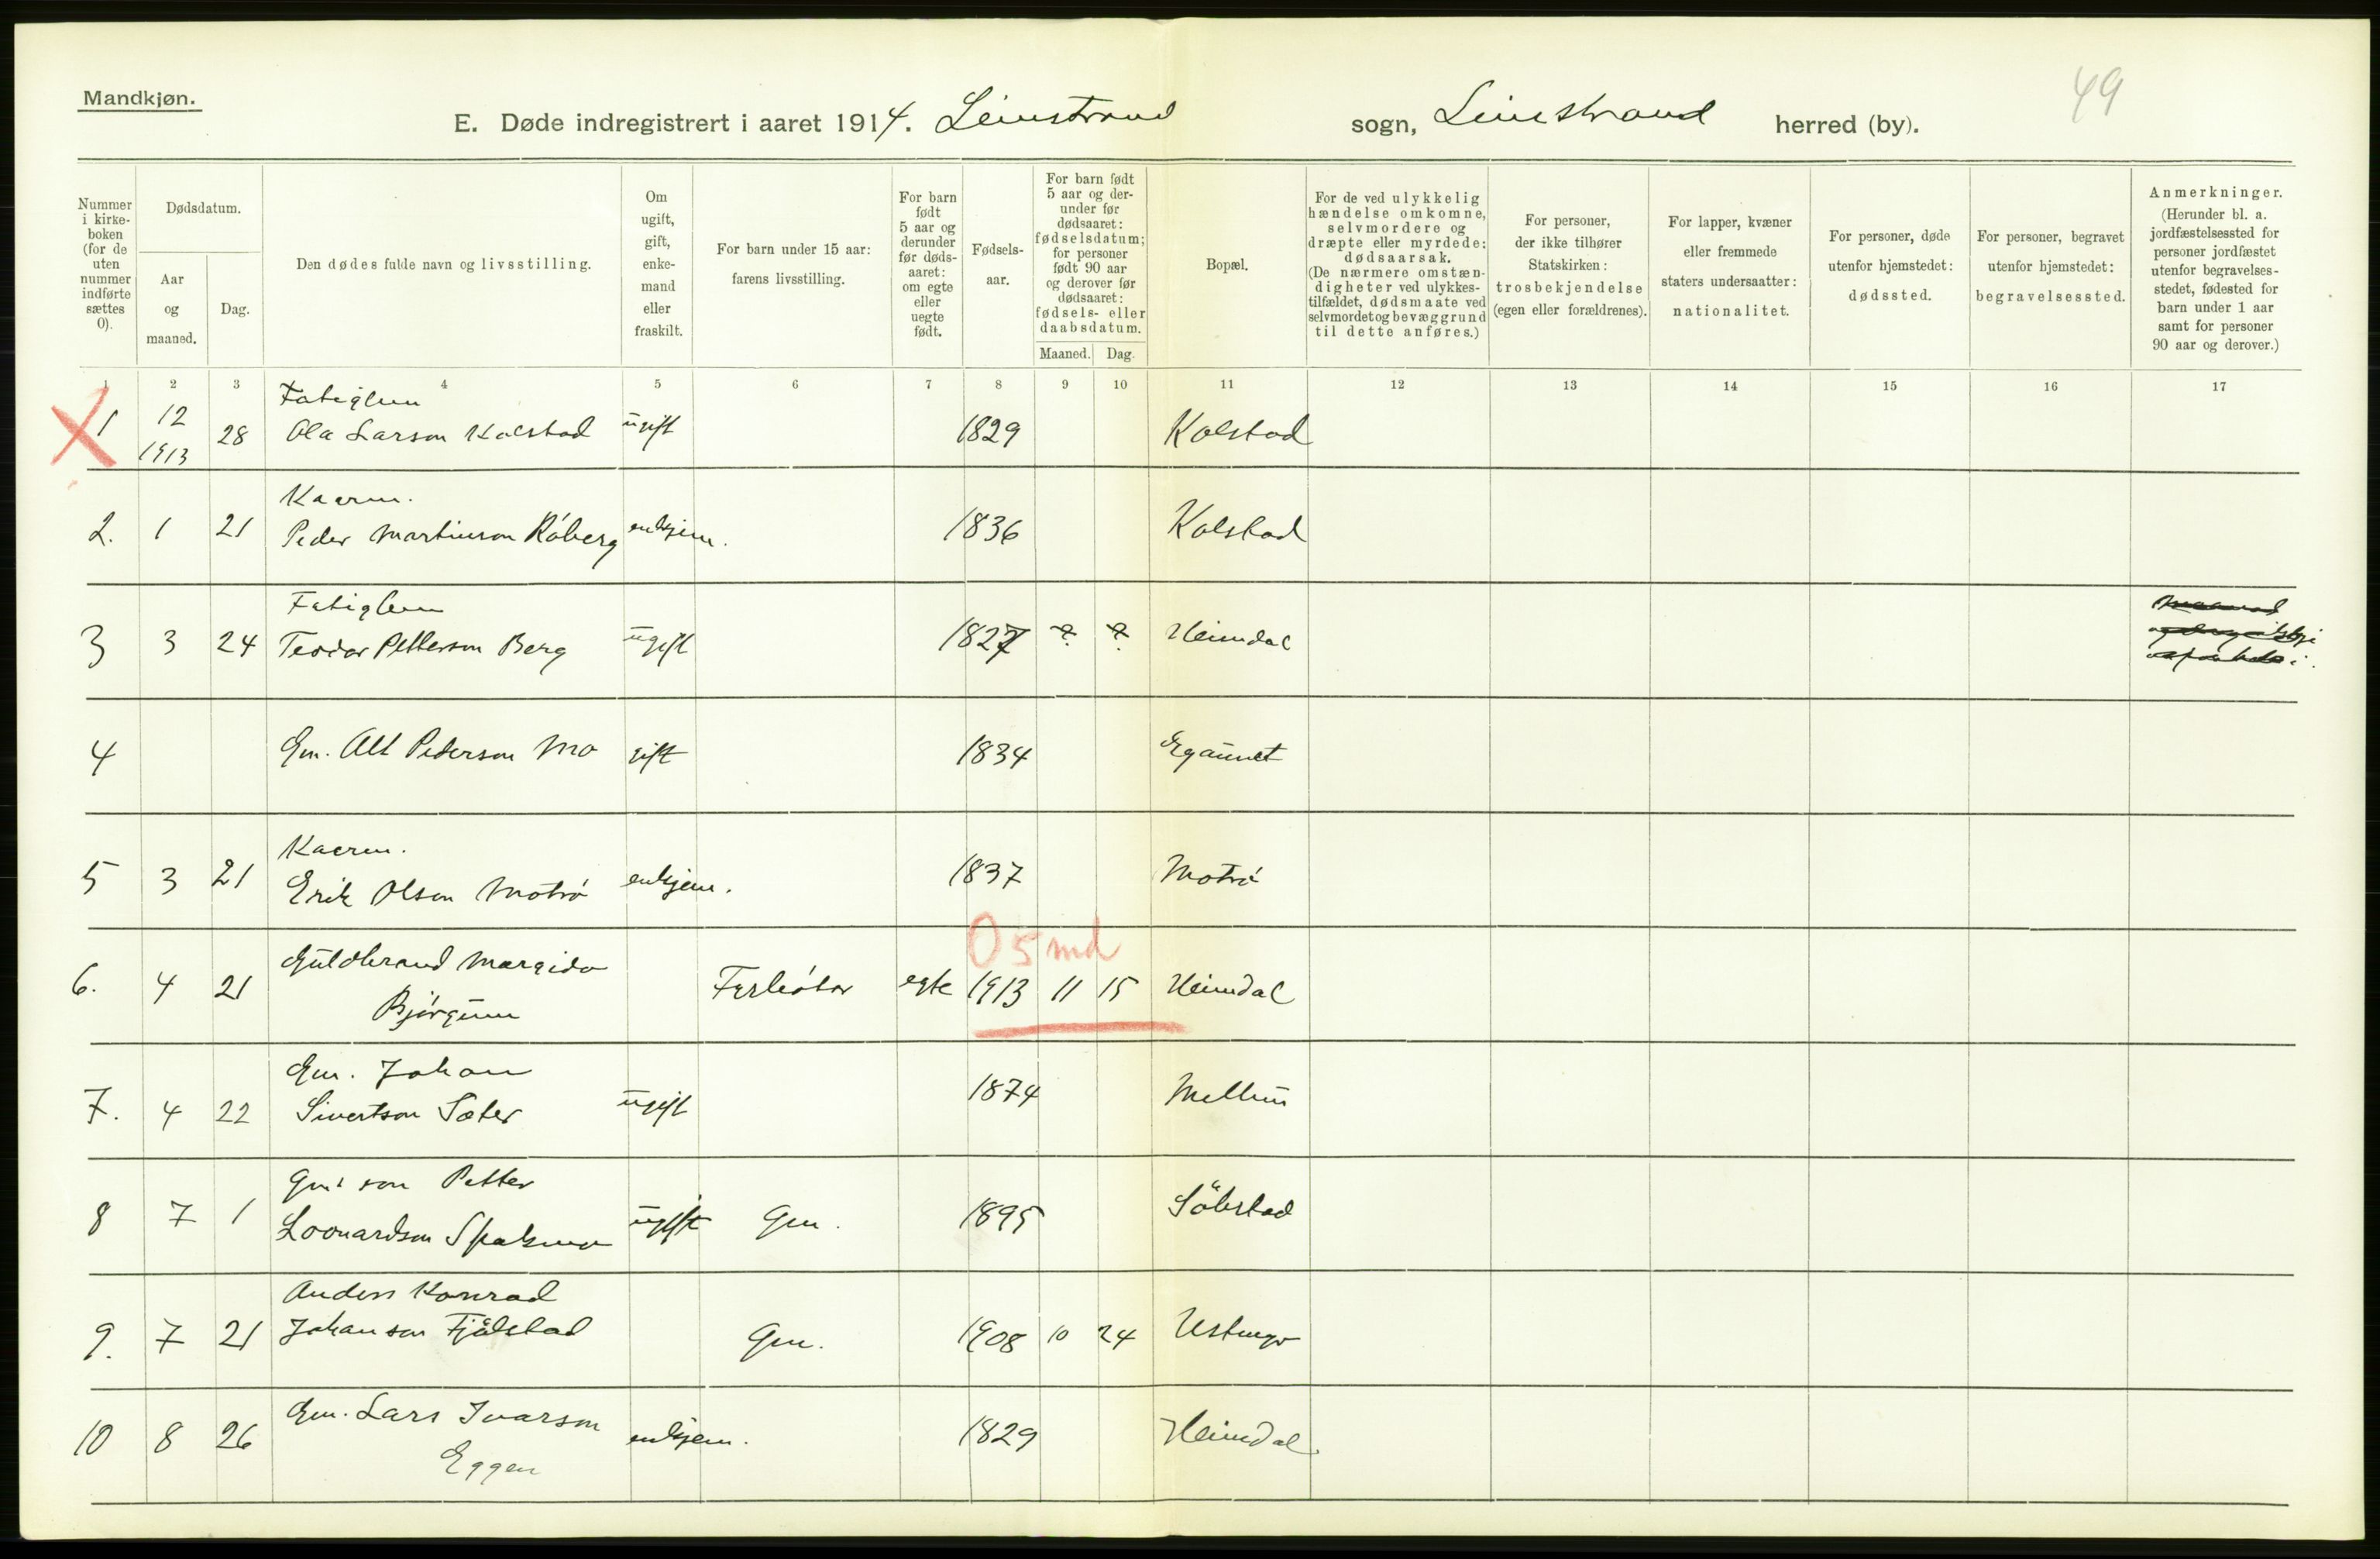 Mandkjøn.
49
E. Døde indregistrert i aaret 1914. Leinstrand sogn, Leinstrand herred (by).
Nummer i kirke- boken (for de uten nummer indførte sættes 0).
Dødsdatum.
Aar og maaned.
Dag.
Den dødes fulde navn og livsstilling.
Om ugift, gift, enke- mand eller fraskilt.
For barn under 15 aar: farens livsstilling.
For barn født 5 aar og derunder før døds- aaret: om egte eller uegte født.
Fødsels- aar.
For barn født 5 aar og der- under før dødsaaret: fødselsdatum; for personer født 90 aar og derover før dødsaaret: fødsels- eller daabsdatum.
Maaned. Dag.
Bopæl.
For de ved ulykkelig hændelse omkomne, selvmordere og dræpte eller myrdede: dødsaarsak. (De nærmere omstæn- digheter ved ulykkes- tilfældet, dødsmaate ved selvmordet og bevæggrund til dette anføres.)
For personer, der ikke tilhører Statskirken: trosbekjendelse (egen eller forældrenes).
For lapper, kvæner eller fremmede staters undersaatter: nationalitet.
For personer, døde utenfor hjemstedet: dødssted.
For personer, begravet utenfor hjemstedet: begravelsessted.
Anmerkninger. (Herunder bl. a. jordfæstelsessted for personer jordfæstet utenfor begravelses- stedet, fødested for barn under 1 aar samt for personer 90 aar og derover.)
1 2 3 4 5 6 7 8 9 10 11 12 13 14 15 16 17
Fatiglem
1 12 1913 28 Ola Larson Kolstad ugift 1829 Kolstad
Kaarm.
2. 1 21 Peder Martinson Råberg enkjem. 1836 Kolstad
Fatiglem
3 3 24 Teodor Petterson Berg ugift 1827 ? ? Heimdal
4 Gm. Alt Pederson Mo gift 1834
Kaarm.
5 3 21 Erik Olson Motrø enkjem. 1837 Motrø
0 5 md
Guldbrand Margido
6. 4 21 Bjørgum egte 1913 11 15 Heimdal
Gm. Johan
7. 4 22 Sivertson Sæter ugift 1874 Mellum
Gm: son Petter
8 7 1 Leonardson ugift Gm. 1895
Anders Konrad
9. 7 21 Johanson Fjølstad Gm. 1908 10 24
Gm. Lars Ivarson
10 8 26 Eggen enkjem. 1829 Heimdal.